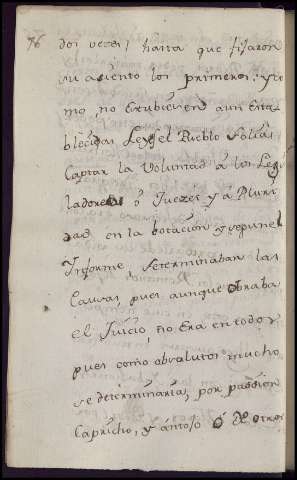 76
dos veces / hasta que fijaron
su asiento los primeros: y co
mo no estubiesen aun Esta
blecidas Leyes el Pueblo Solicita
Captar la Voluntad a los Legis
ladores ó Juezes y á Plura
dad en la botacion y segun el
Informe, Se terminaban las
Causas, pues aunque Obraba
el Juicio, no Era en todo y
pues como absolutos mucho
se determinaria, por passion
Capricho, y antojo ó de otros